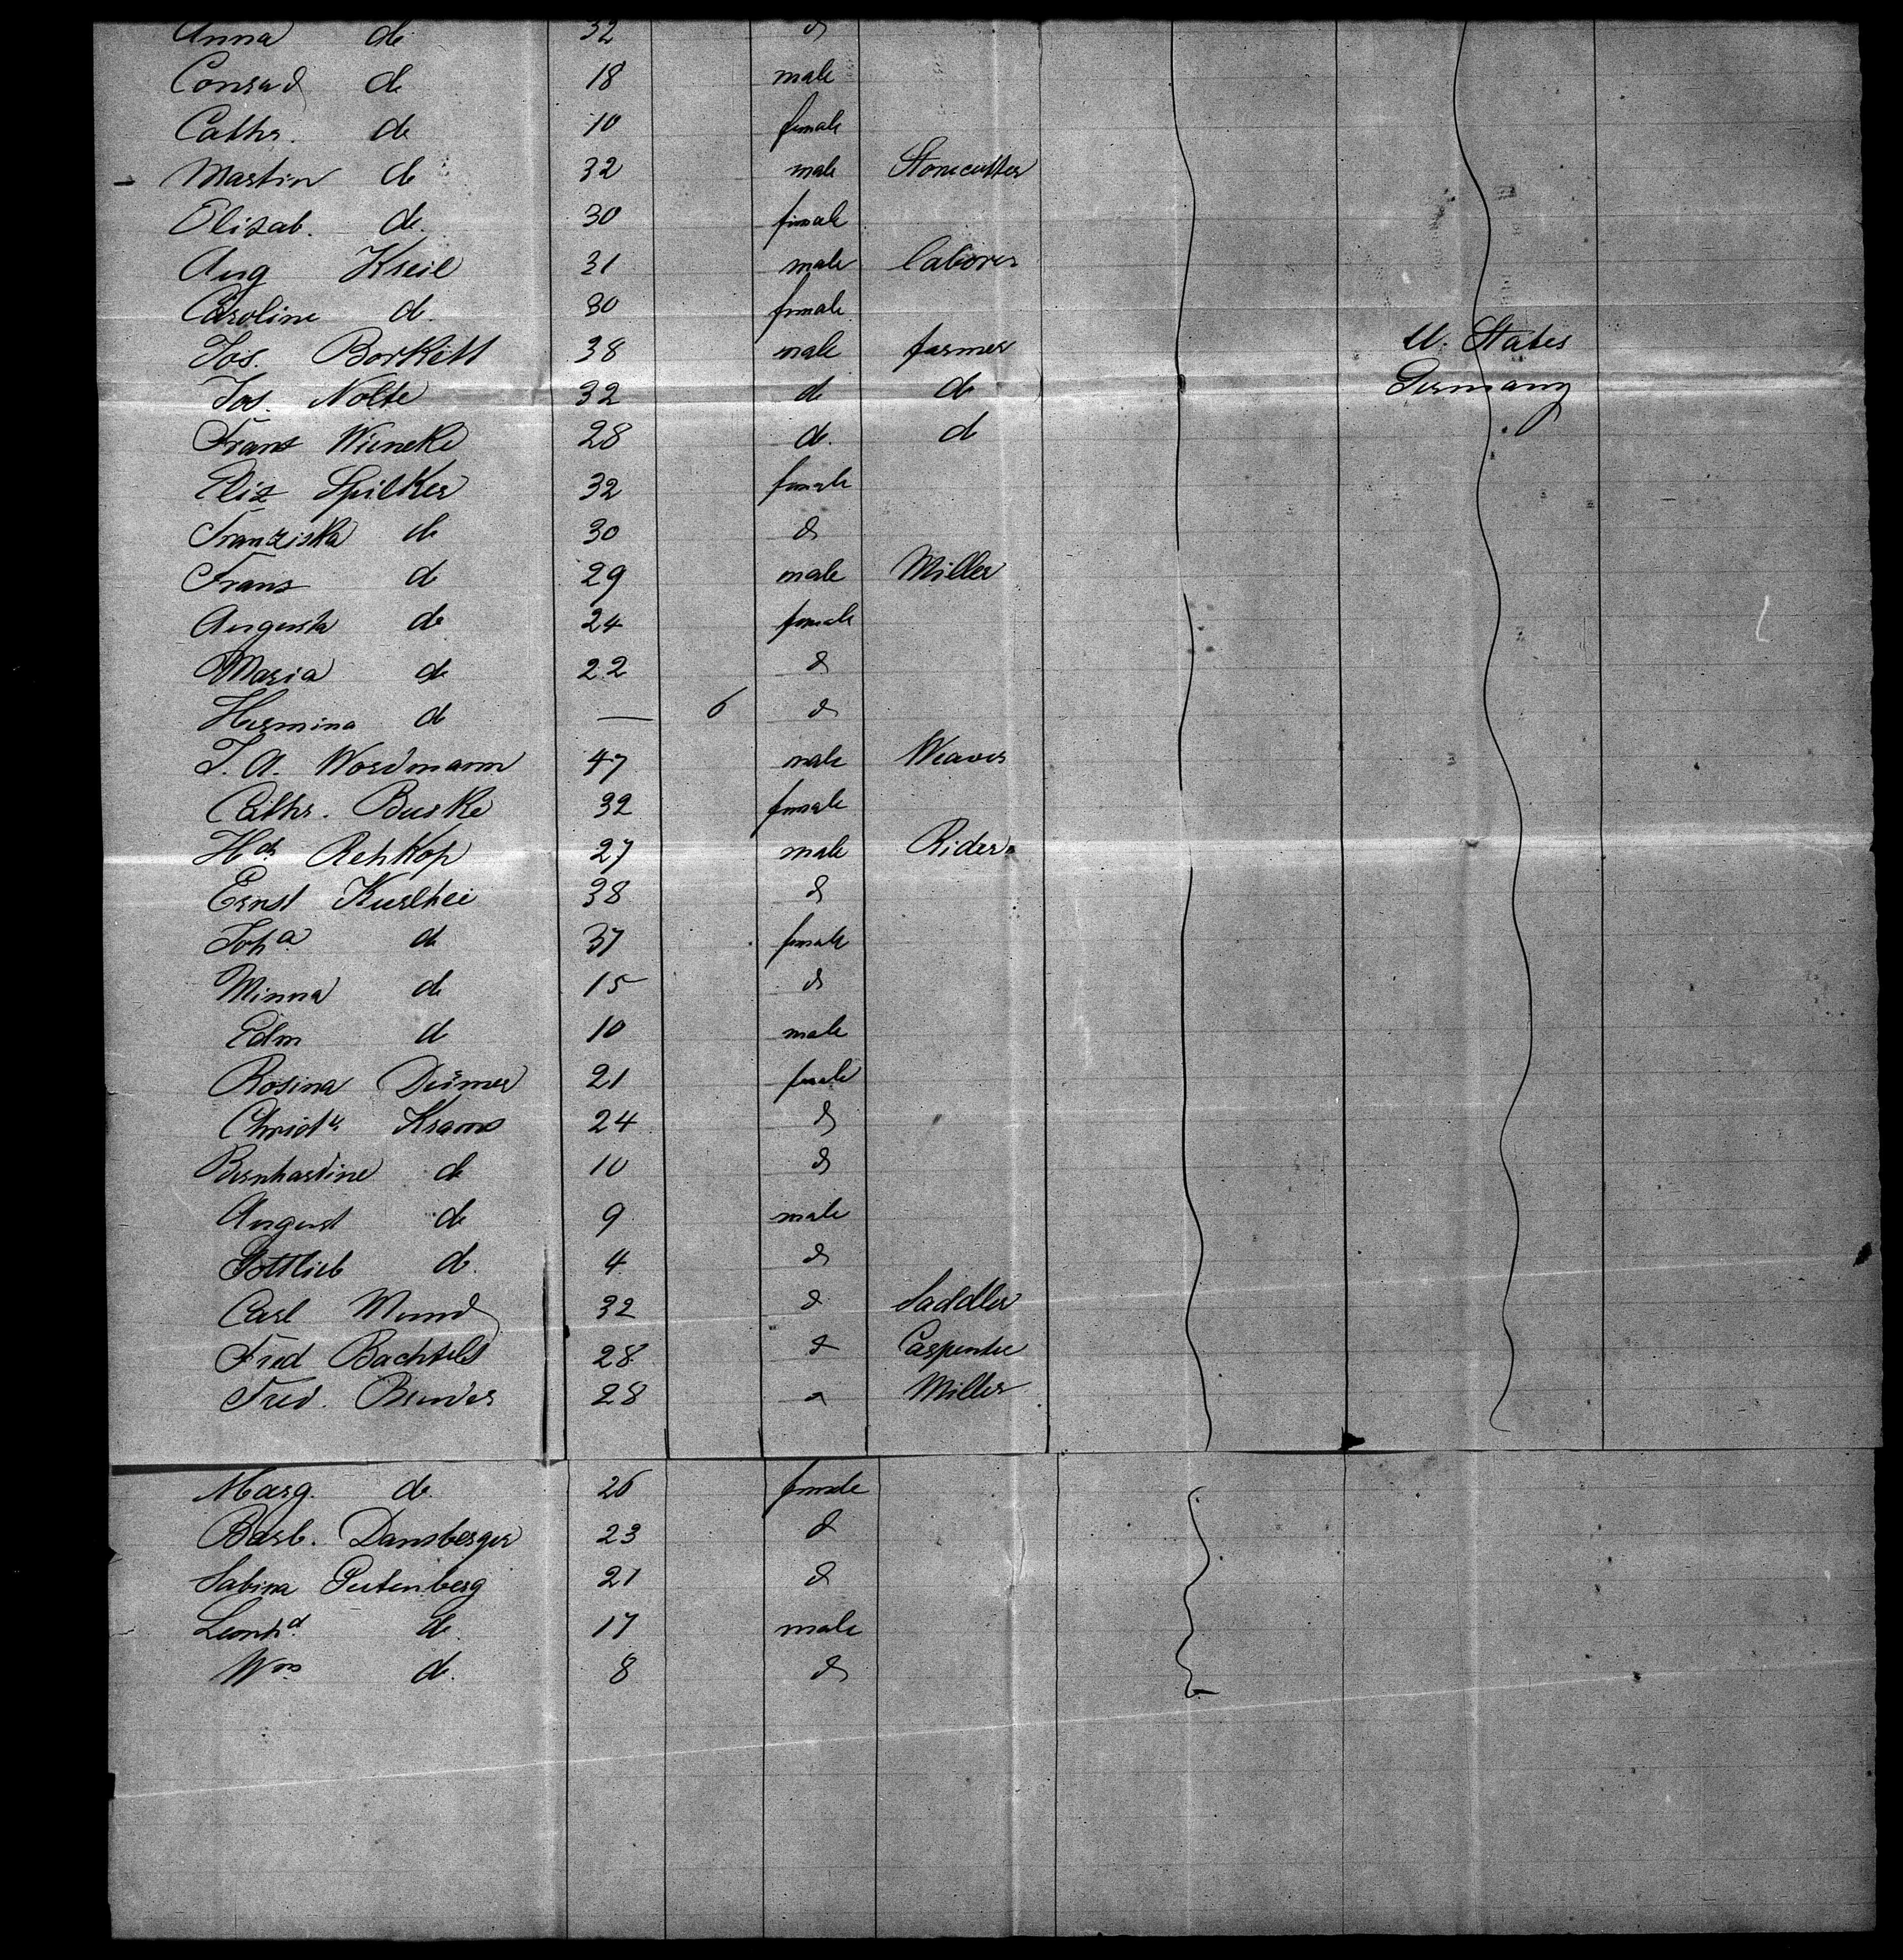 Anna do 32 do
Conrad do 18 male
Cathr. do 10 female
Martin do 32 male Stonecutter
Elisab. do. 30 female
Aug Kreil 31 male laborer
Caroline do. 30 female
Jos. Borkett 38 male farmer U. States
Jos. Nolte 32 do do Germany
Franz Wieneke 28 do. do
Eliz Spilker 32 female
Franziska do 30 do
Franz do 29 male Miller
Augusta do 24 female
Maria do 22 do
Hermina do — 6 do
J. A. Wordmann 47 male Weaver
Cathr. Buske 32 female
Hch Rehkop 27 male Rider
Ernst Kurlhei 38 do
Joha do 37 female
Minna do 15 do
Edm do 10 male
Rosina 21 female
Christe Kramo 24 do
Bernhardine do 10 do
August do 9 male
Gottlieb do. 4 do
Carl Mund 32 do Saddler
Fred Bachteld 28 do Carpenter
Fred. Bender 28 do Miller
Marg. do. 26 female
Barb. Dansberger 23 do
Sabina Geitenberg 21 do
Leonhd do. 17 male
Wm do. 8 do